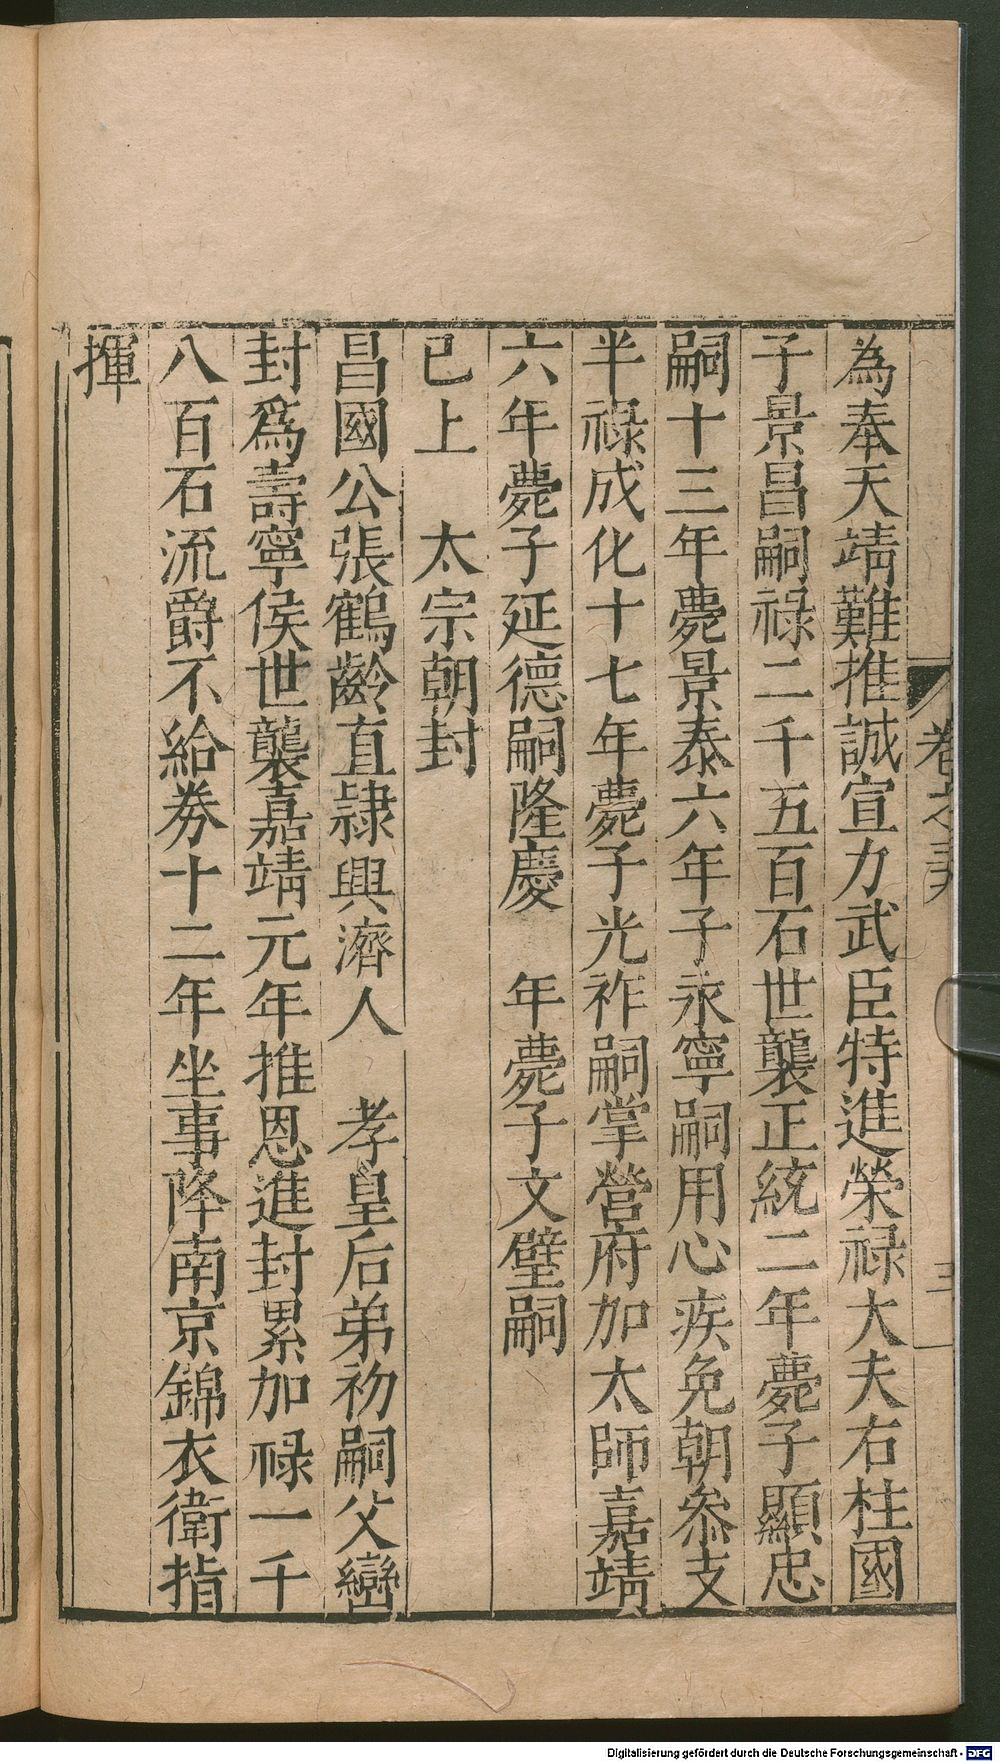 為奉天靖難推誠宣力武臣特進榮祿大夫右柱國
子景昌嗣祿二千五百石世襲正統二年薨子顯忠
嗣十三年薨景泰六年子永寧嗣用心疾免朝叅支
半祿成化十七年薨子光祚嗣掌營府加太師嘉靖
六年薨子延德嗣隆慶　年薨子文璧嗣
已上　太宗朝封
昌國公張鶴齡直隸興濟人　孝皇后弟初嗣父巒
封爲壽寧侯世襲嘉靖元年推恩進封累加祿一千
八百石流爵不給劵十二年坐事降南京錦衣衛指
揮
卷之
Digitalisierung gefördert durch die Deutsche Forschungsgemeinschaft - DFG